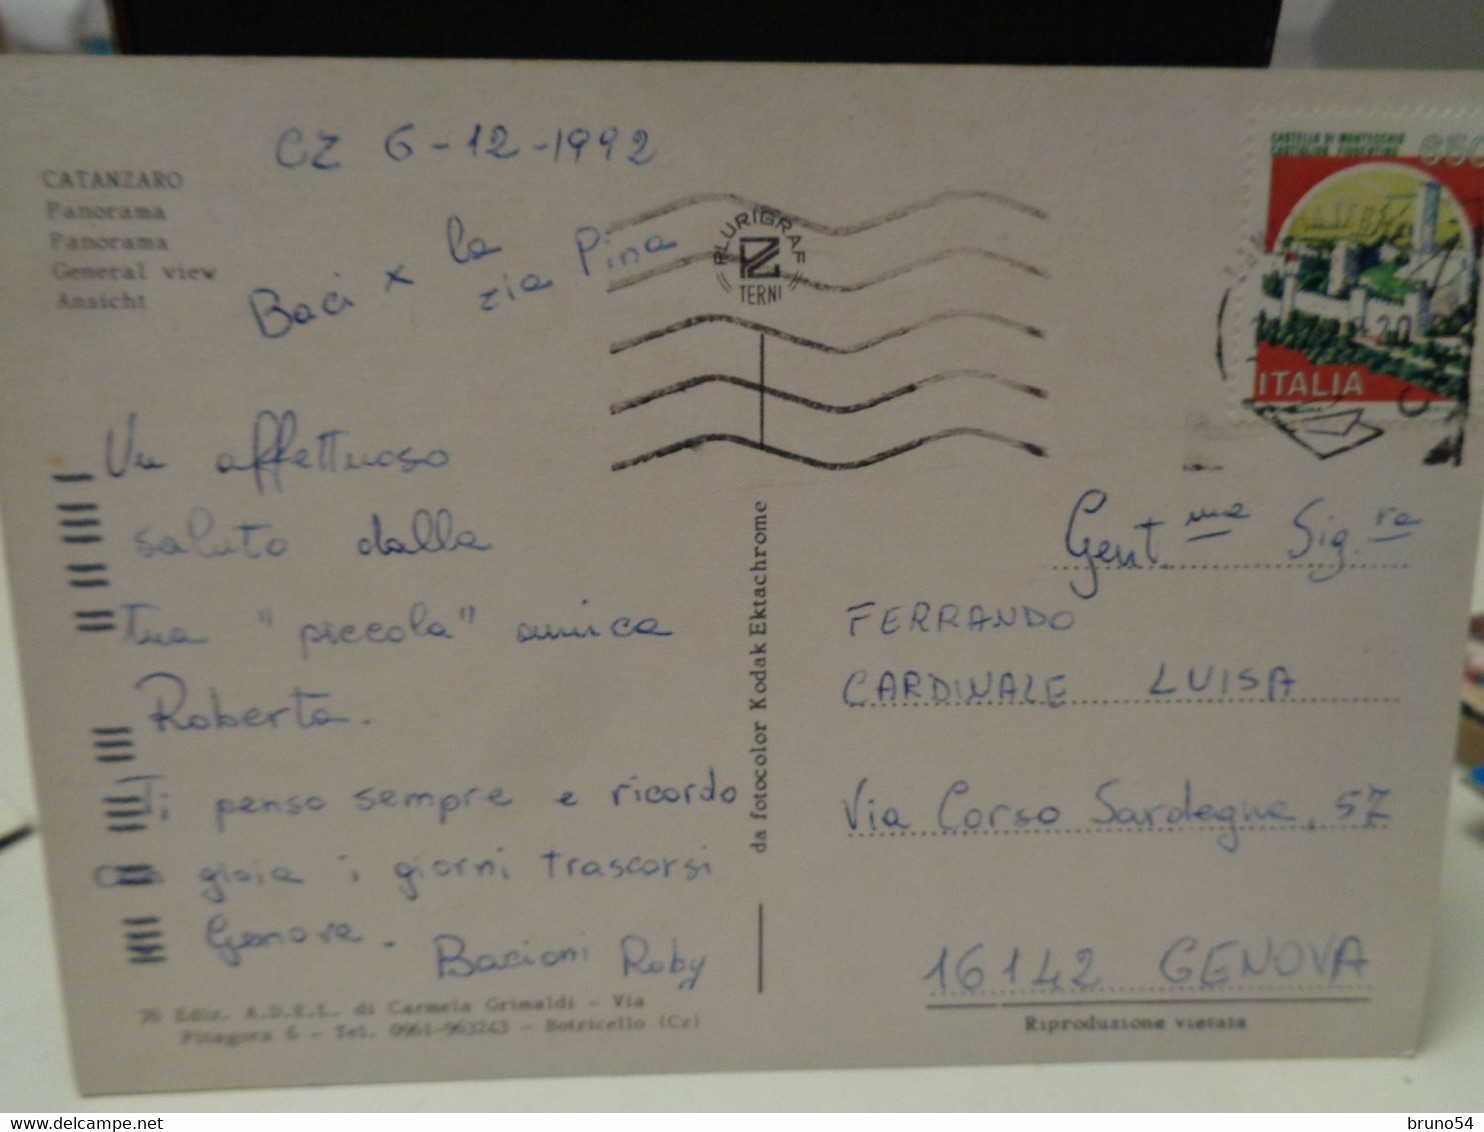 CZ 6-12-1992
CATANZARO
Panorama
Panorama
General view
Ansicht
Baci x la
zia Pina
Un affettuoso
saluto dalla
tua "piccola" amica
Roberta.
Ti penso sempre e ricordo
con gioia i giorni trascorsi
a Genova. Bacioni Roby
76 Ediz. A.D.E.L. di Carmela Grimaldi - Via
Pitagora 6 - Tel. 0961-963243 - Botricello (Cz)
PLURIGRAF
TERNI
da fotocolor Kodak Ektachrome
CASTELLO DI MONTECCHIO
CASTIGLION FIORENTINO
650
ITALIA
Gent.ma Sig.ra
FERRANDO
CARDINALE LUISA
Via Corso Sardegna, 57
16142 GENOVA
Riproduzione vietata
bruno54